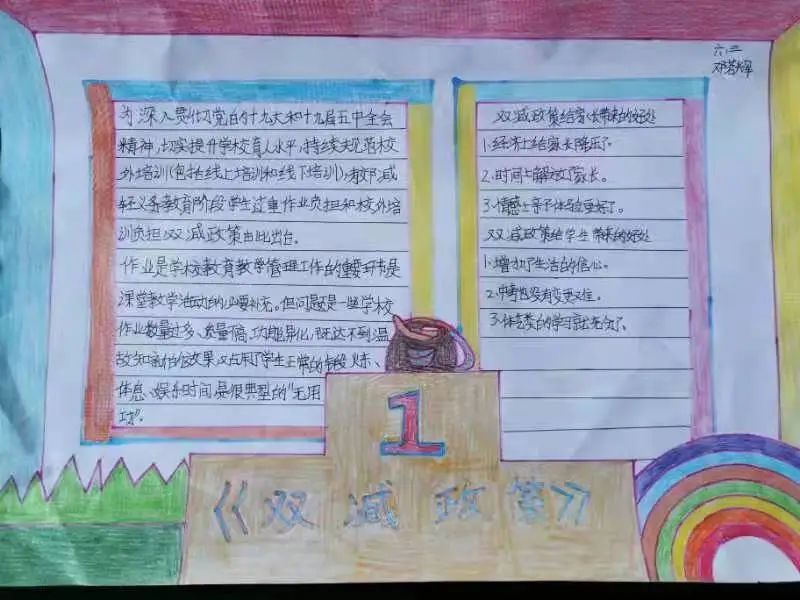 六.三
邓若辉
为深入贯彻党的十九大和十九届五中全会
精神,切实提升学校育人水平,持续规范校
外培训(包括线上培训和线下培训),有效减
轻义务教育阶段学生过重作业负担和校外培
训负担,双减政策由此出台。
作业是学校教育教学管理工作的重要环节是
课堂教学活动的必要补充。但问题是一些学校
作业数量过多、质量不高、功能异化,既达不到温
故知新的效果又占用了学生正常的锻炼、
休息、娱乐时间是很典型的"无用
功"。
双减政策给家长带来的好处
1.经济上给家长降压了。
2.时间上解放了家长。
3.情感上亲子体验更好了。
双减政策给学生带来的好处
1.增加了生活的信心。
2.中考也没有变更难。
3.体艺类的学习就充分了。
1
《双减政策》